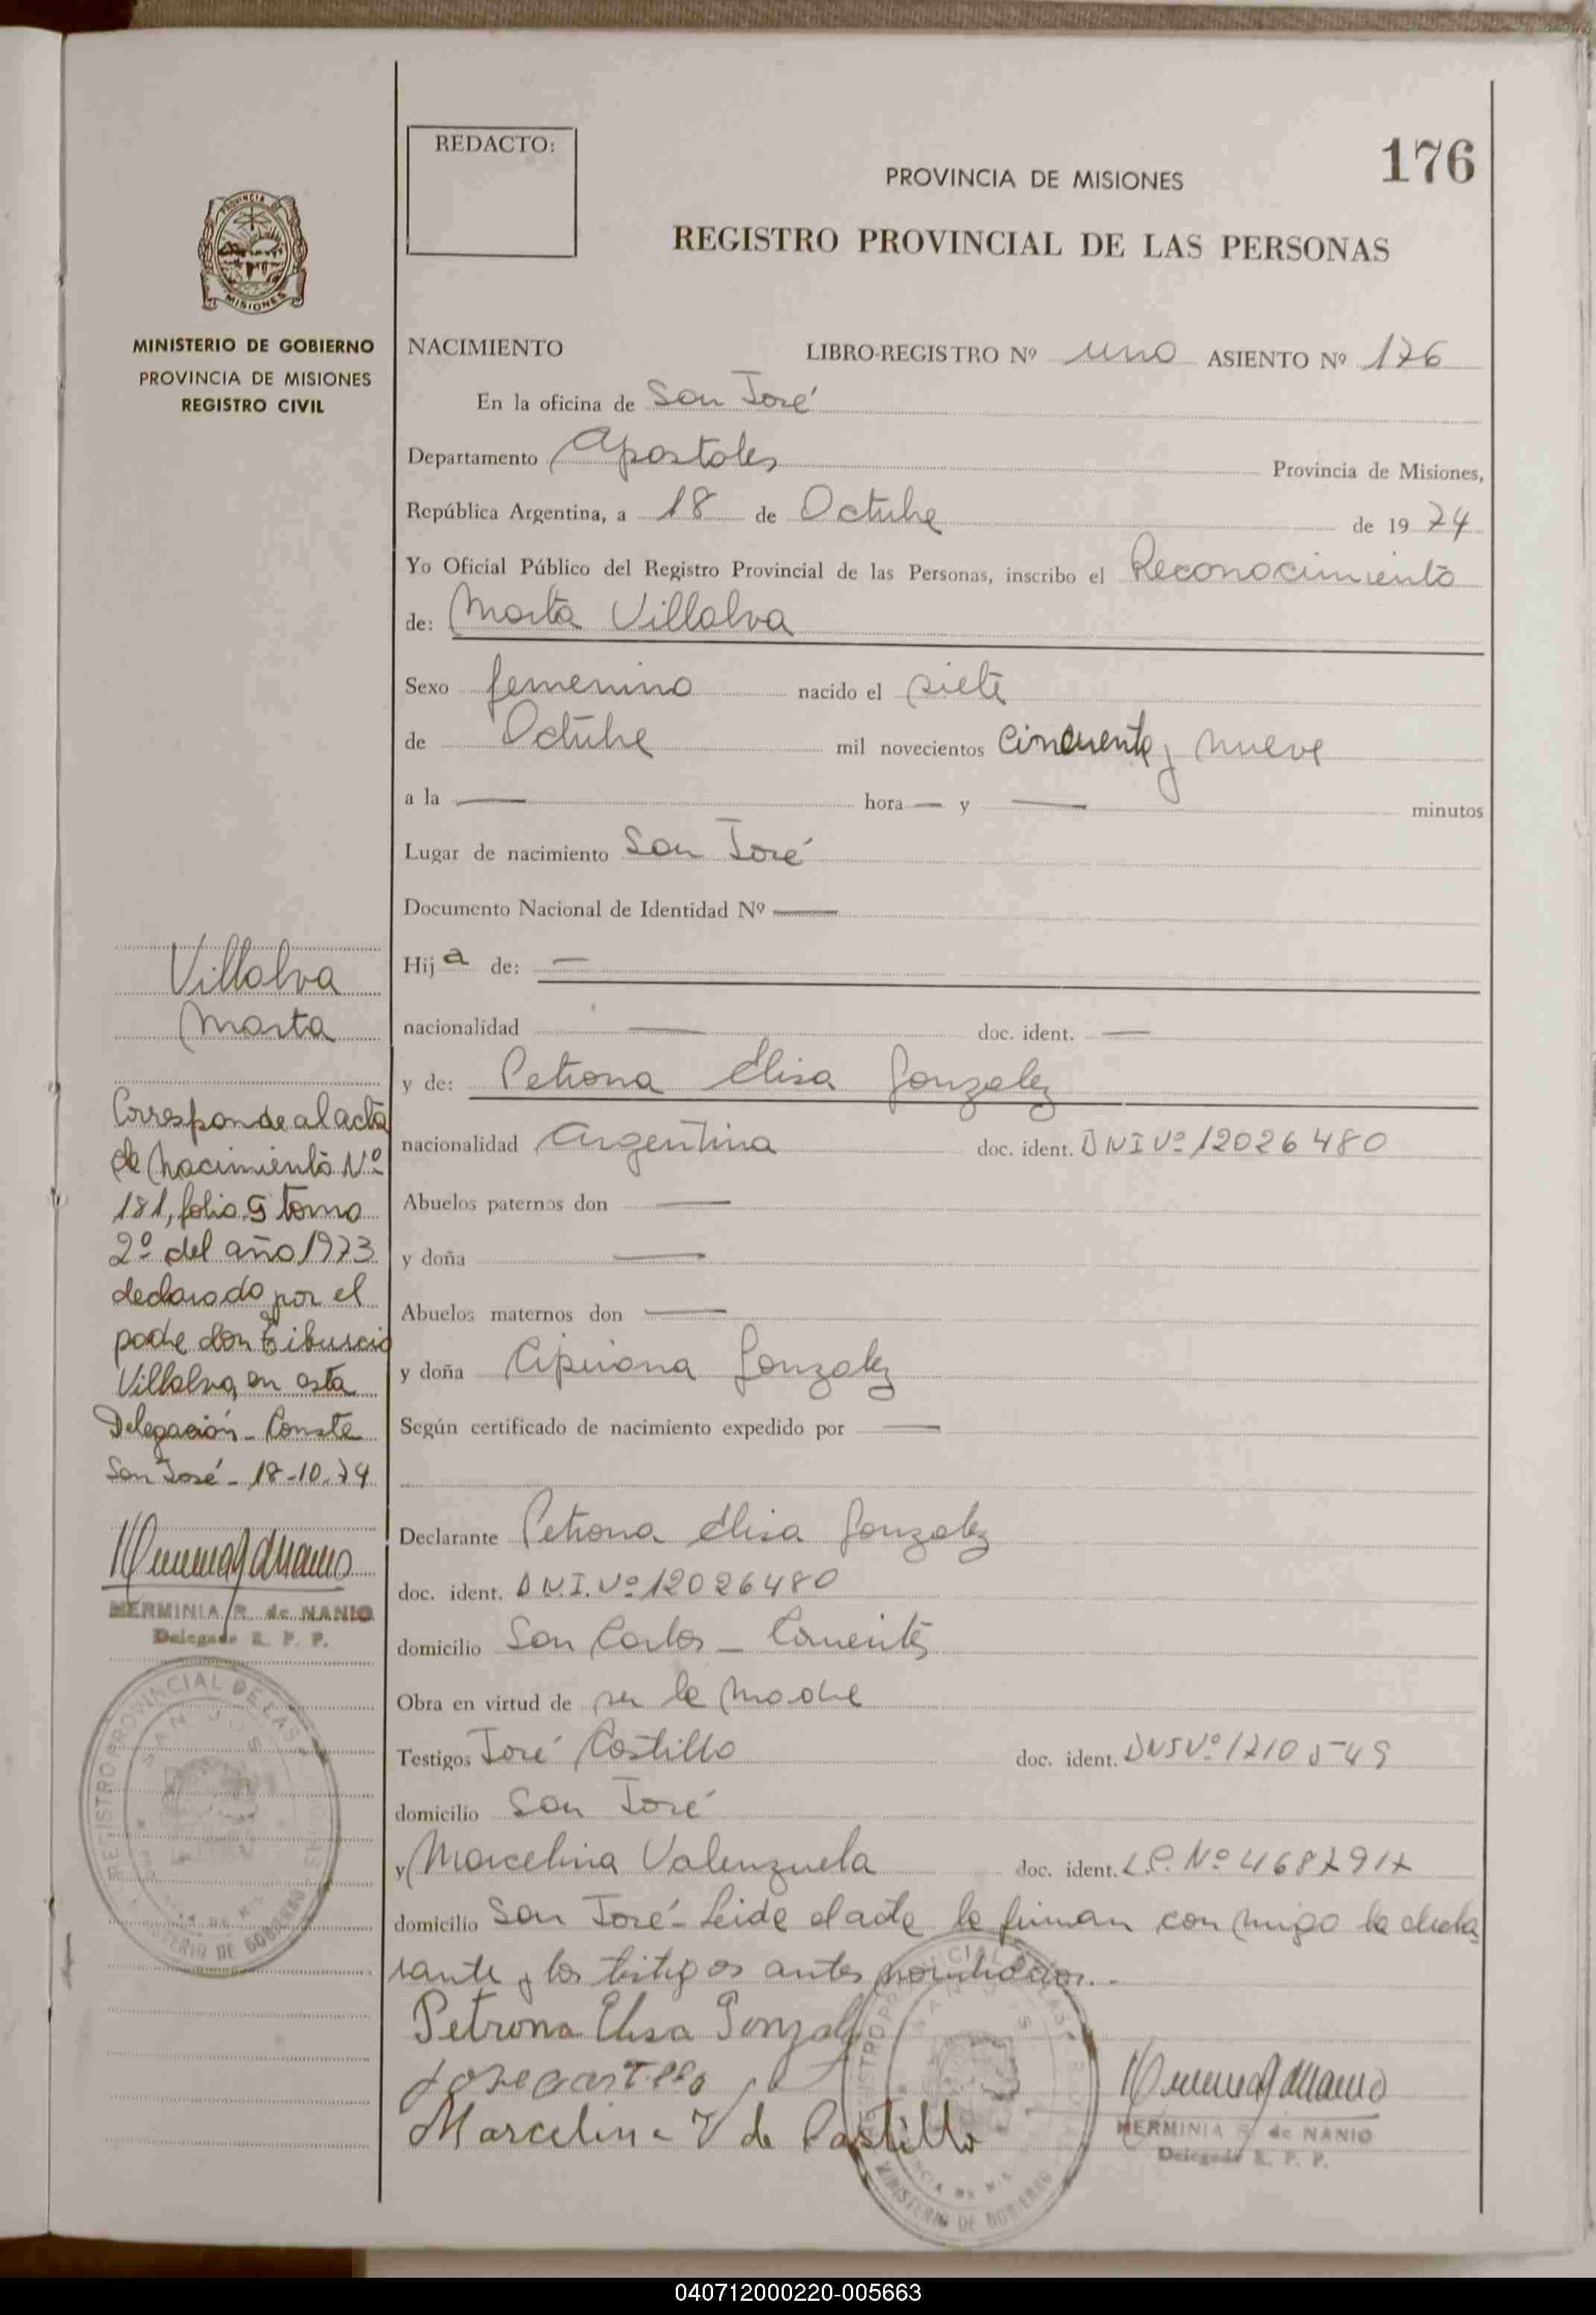 REDACTO:
176
PROVINCIA DE MISIONES
REGISTRO PROVINCIAL DE LAS PERSONAS
PROVINCIA DE
MISIONES
MINISTERIO DE GOBIERNO
PROVINCIA DE MISIONES
REGISTRO CIVIL
NACIMIENTO LIBRO-REGISTRO Nº uno ASIENTO Nº 176
En la oficina de San José
Departamento Apostoles Provincia de Misiones,
República Argentina, a 18 de Octubre de 1974
Yo Oficial Público del Registro Provincial de las Personas, inscribo el Reconocimiento
de: Marta Villalva
Sexo femenino nacido el siete
de Octubre mil novecientos Cincuenta y nueve
a la — hora — y — minutos
Lugar de nacimiento San José
Documento Nacional de Identidad Nº —
Hija de: —
nacionalidad — doc. ident. —
y de: Petrona Elisa Gonzalez
nacionalidad Argentina doc. ident. DNI Nº 12026480
Abuelos paternos don —
y doña —
Abuelos maternos don —
y doña Cipriana Gonzalez
Según certificado de nacimiento expedido por —
Declarante Petrona Elisa Gonzalez
doc. ident. D.N.I. Nº 12026480
domicilio San Carlos - Corrientes
Obra en virtud de ser la madre
Testigos José Castillo doc. ident.
domicilio San José
y Marcelina Valenzuela doc. ident. L.C. Nº
domicilio San José - Leida el acta la firman con migo la decla
rante y los testigos antes nombrados.
Petrona Elisa Gonzalez
Jose Castillo
Marcelina V de Castillo
HERMINIA R. de NANIO
Delegada R. P. P.
Villalva
Marta
Corresponde al acta
de Nacimiento Nº
181, folio 5 tomo
2º del año 1973
declarado por el
padre don Tiburcio
Villalva, en esta
Delegación - Conste
San José - 18-10-74
HERMINIA R. de NANIO
Delegada R. P. P.
REGISTRO PROVINCIAL DE LAS PERSONAS
SAN JOSE
MINISTERIO DE GOBIERNO
MINISTERIO DE GOBIERNO
040712000220-005663